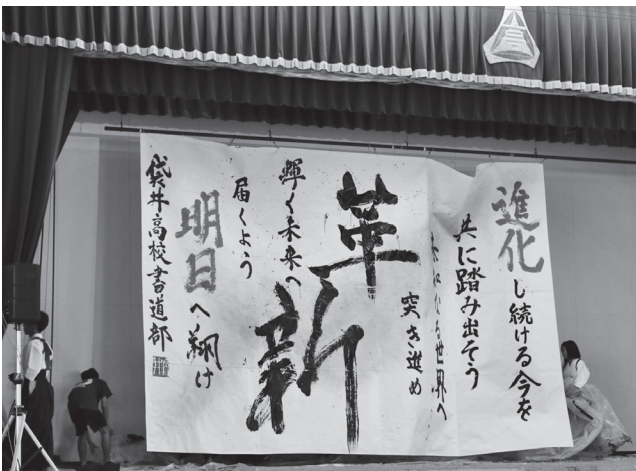 高
進化し続ける今を
共に踏み出そう
なる世界へ
突き進め
革新
輝く未来へ
届くよう
明日へ翔け
袋井高校書道部